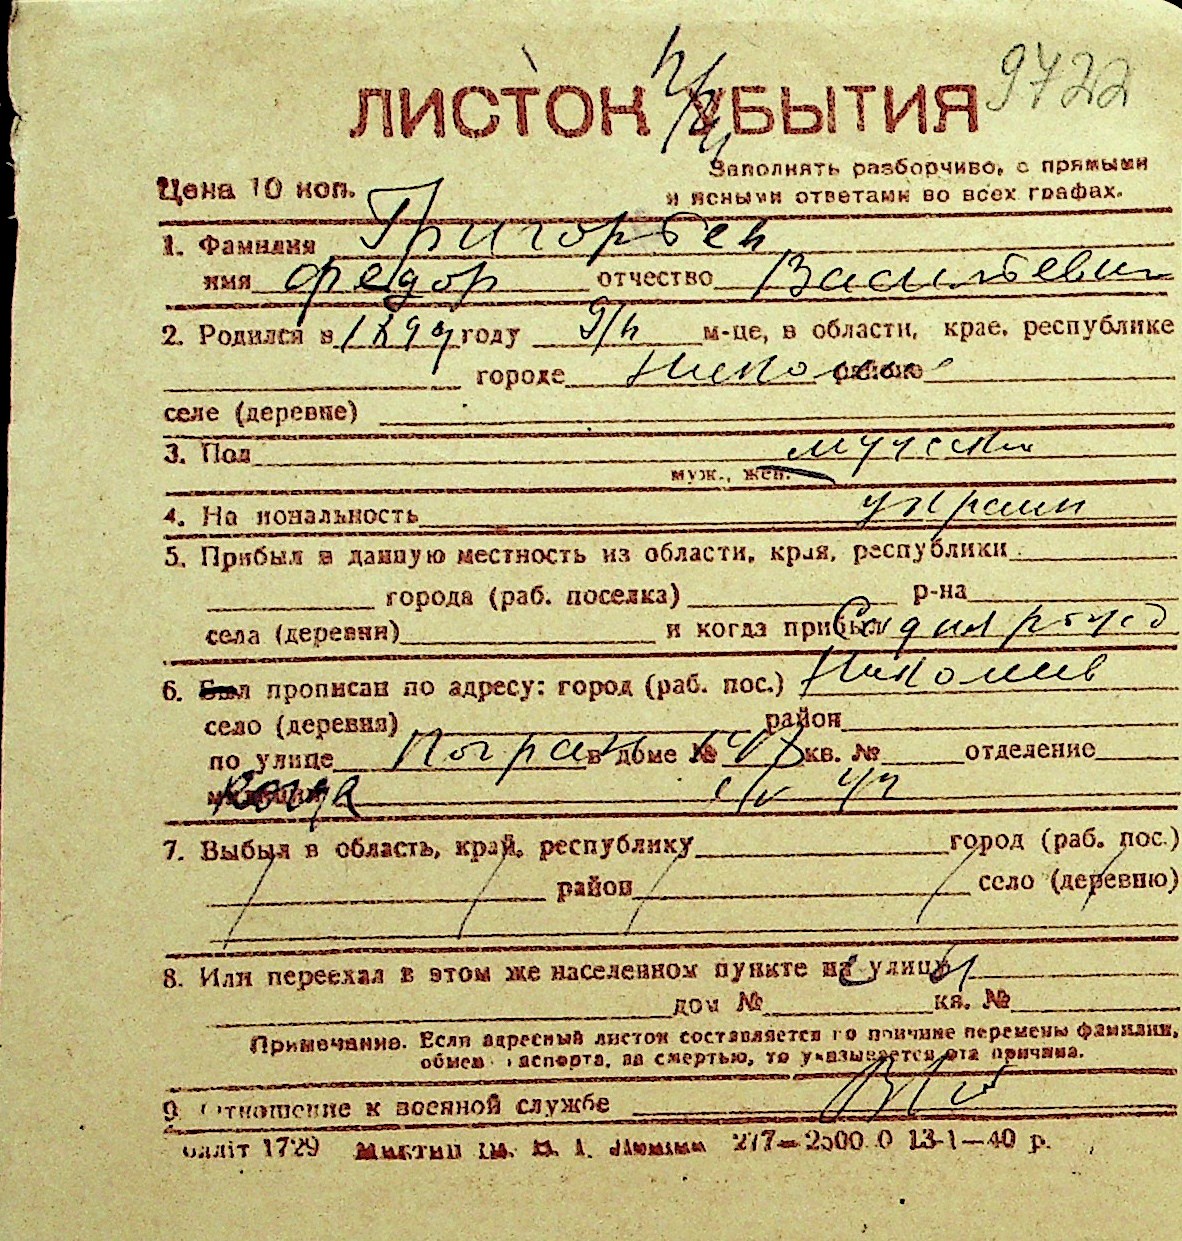 9722
ЛИСТОК УБЫТИЯ
Цена 10 коп.
Заполнять разборчиво, с прямыми
и ясными ответами во всех графах.
1. Фамилия Григорьев
имя Федор отчество Васильевич
2. Родился в году м-це, в области, крае, республике
городе районе
селе (деревне)
3. Пол мужской
муж., жен.
4. На иональность украин
5. Прибыл в данную местность из области, края, республики
города (раб. поселка) р-на
села (деревни) и когда прибыл
6. Был прописан по адресу: город (раб. пос.) Николаев
село (деревня) район
по улице в доме № кв. № отделение
Когда
7. Выбыл в область, край, республику город (раб. пос.)
район село (деревню)
8. Или переехал в этом же населенном пункте на улицу
дом № кв. №
Примечание. Если адресный листок составляется по причине перемены фамилии,
обмен паспорта, за смертью, то указывается эта причина.
9. Отношение к военной службе
1729 277—2500 0 13-1—40 р.